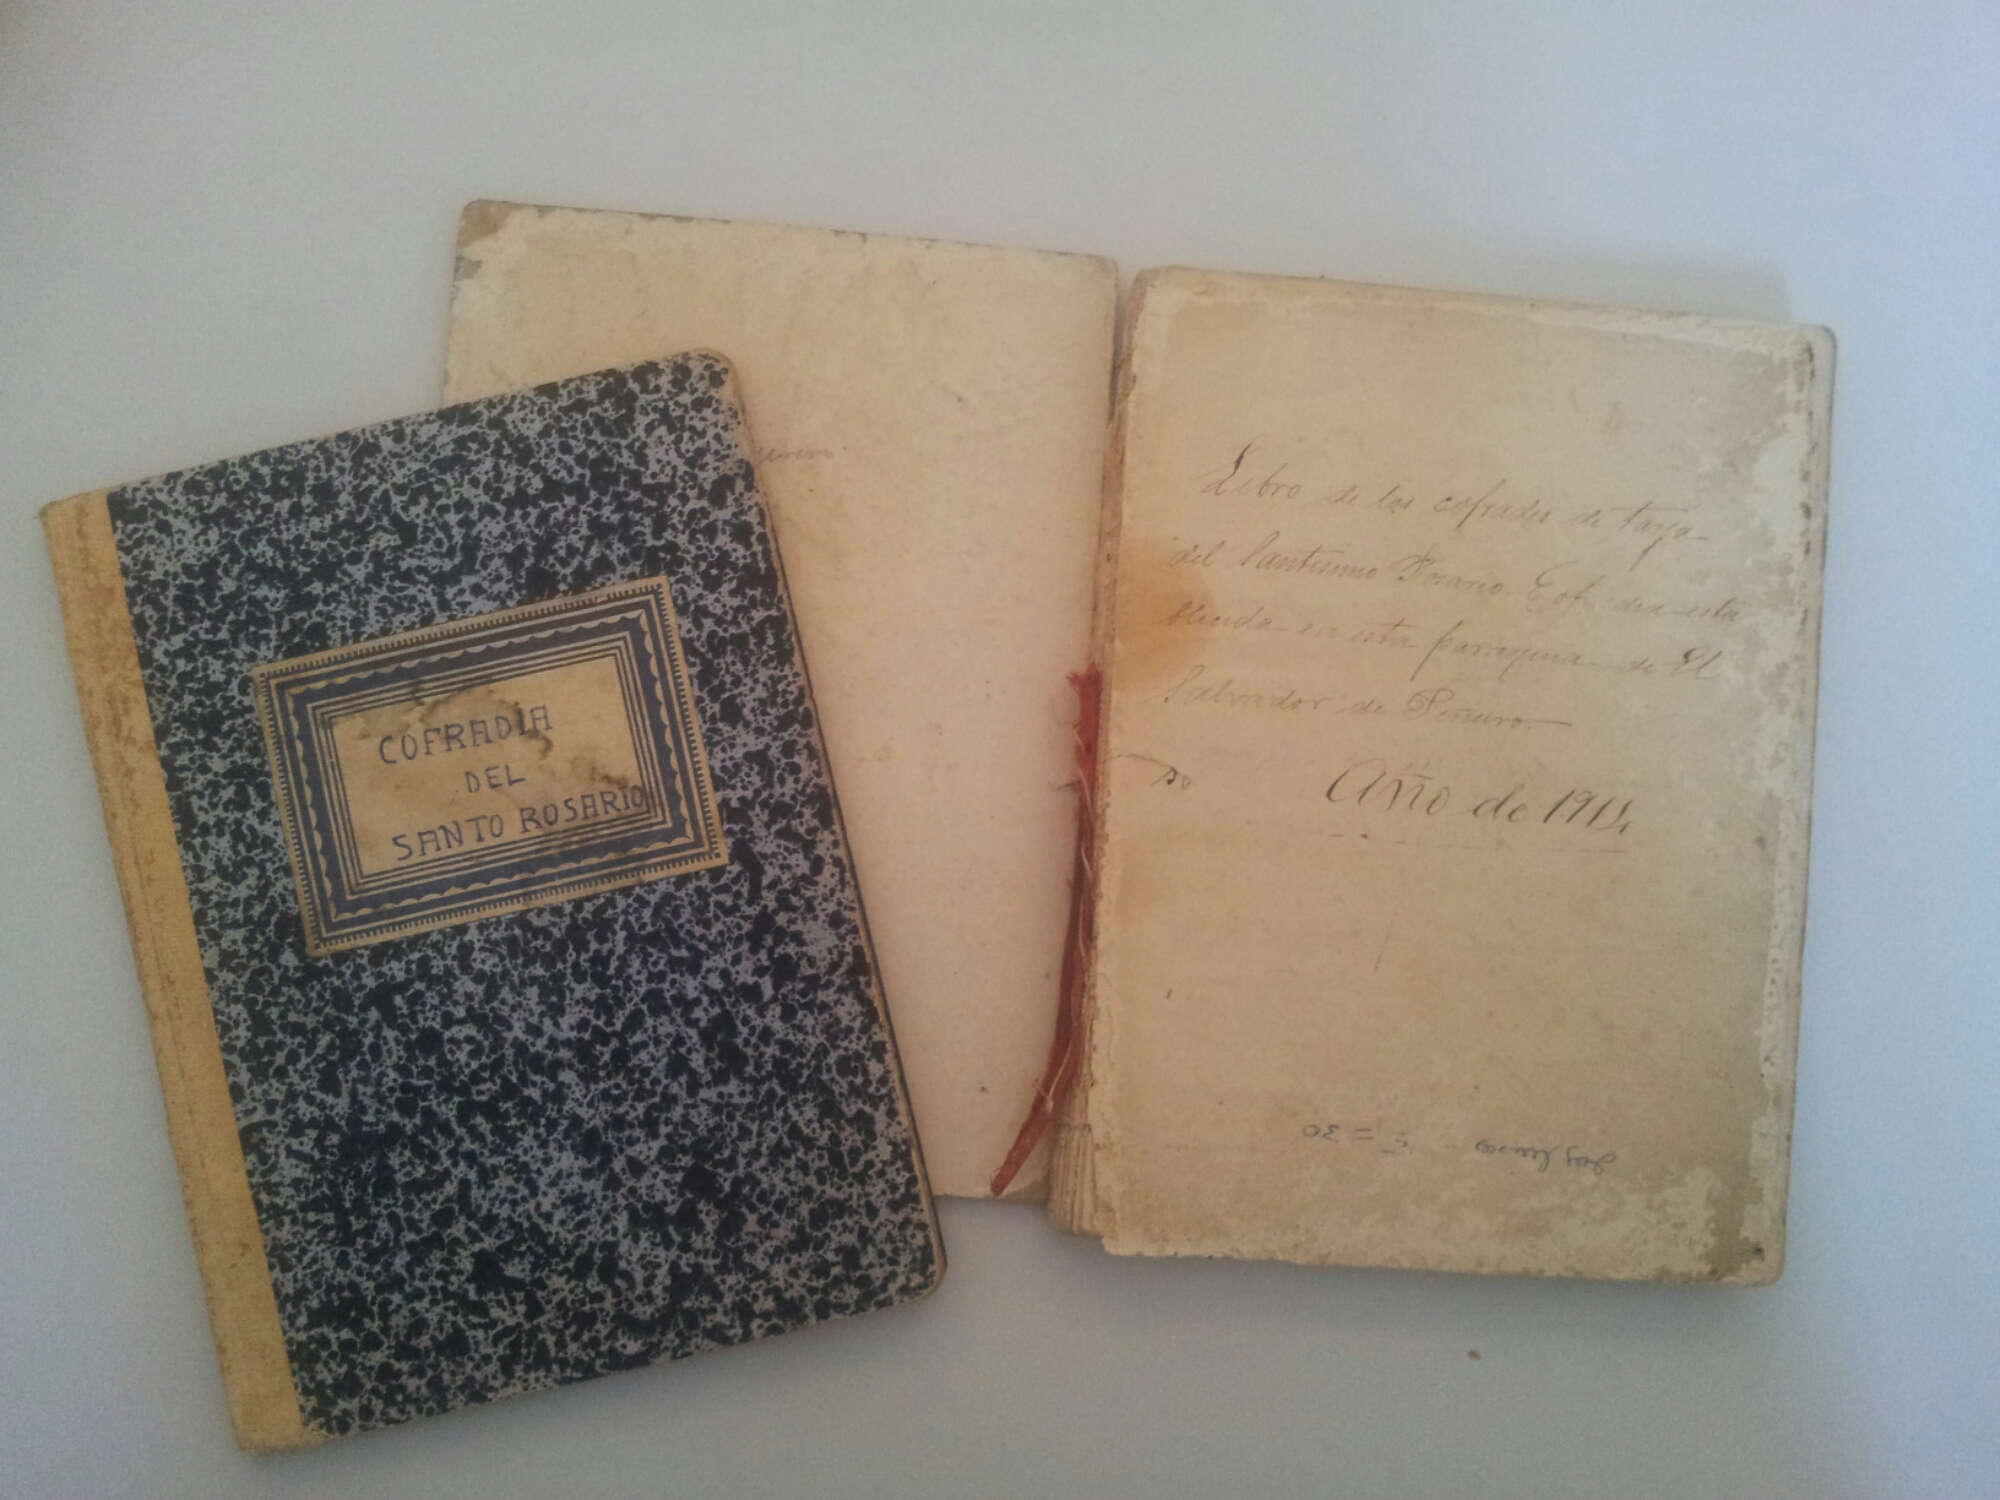 COFRADIA
DEL
SANTO ROSARIO
Libro de los cofrades de tarja
del Santísimo Rosario. Cofradia esta
blecida en esta parroquia de El
Salvador de
Año de 1914
= 30